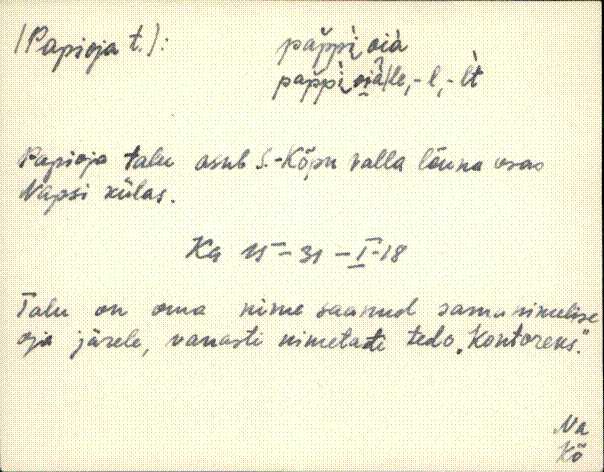 (Papioja t.): pap̆pi̮ oi̯à
pap̆pi̮ oi̯à|le, -l, -lt
Papioja talu asub S.-Kõpu valla lõuna osas
Napsi külas.
Ka 15 - 31 - I - 18
Talu on oma nime saanud samanimelise
oja järele, vanasti nimetati teda „Kontorens".
Na
Kõ